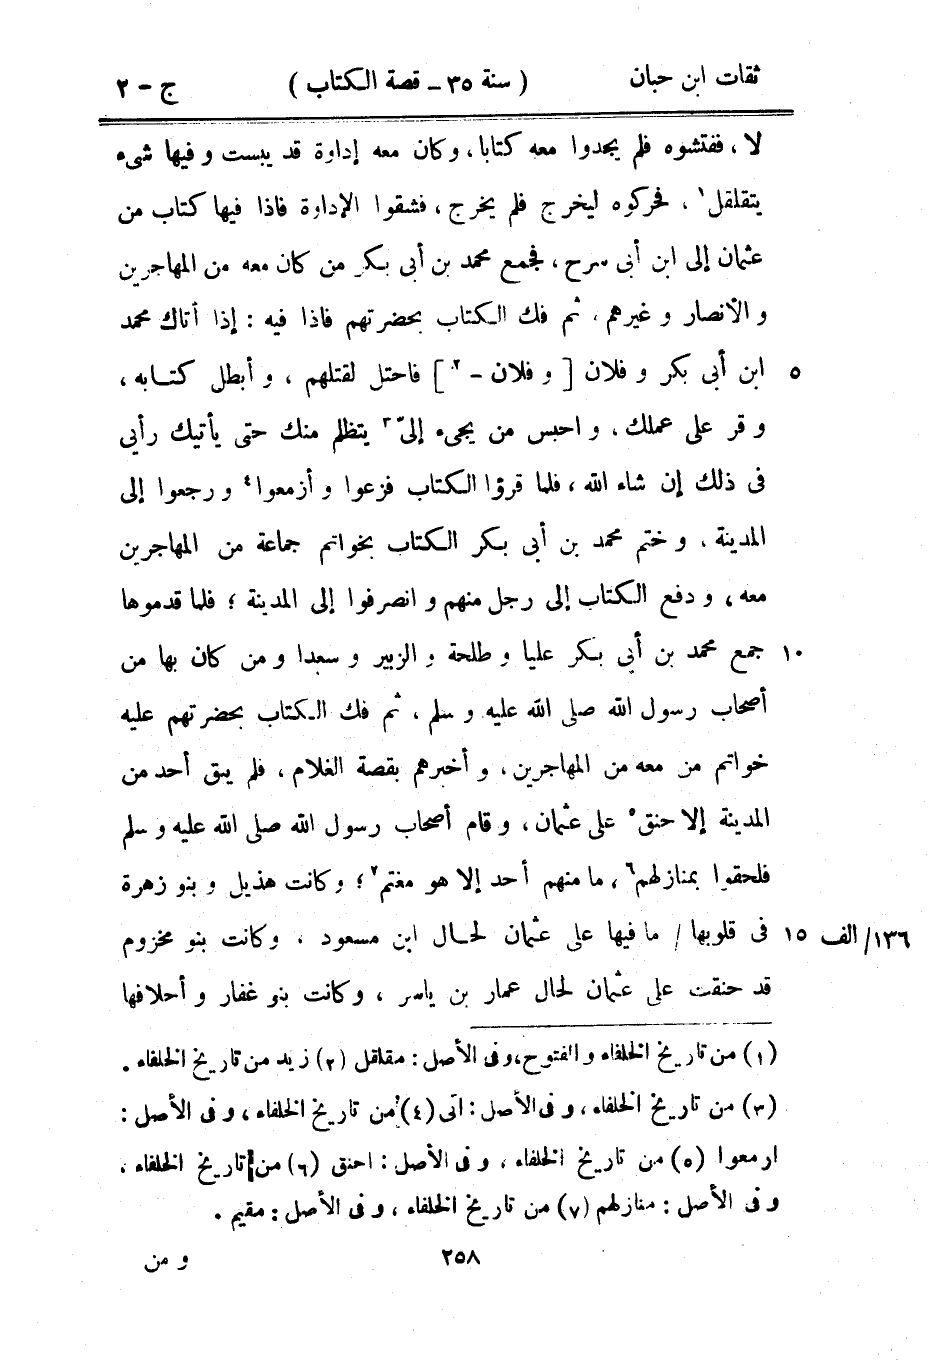 ثقات ابن حبان ( سنة ٣٥ ـ قصة الكتاب ) ج - ٢
لا ، ففتشوه فلم يجدوا معه كتابا ، وكان معه إداوة قد يبست و فيها شىء
يتقلقل١ ، فحركوه ليخرج فلم يخرج ، فشقوا الإداوة فاذا فيها كتاب من
عثمان إلى ابن أبى سرح ، فجمع محمد بن أبى بكر من كان معه من المهاجرين
و الأنصار و غيرهم ، ثم فك الكتاب بحضرتهم فاذا فيه : إذا أتاك محمد
٥ ابن أبى بكر و فلان [ و فلان - ٢ ] فاحتل لقتلهم ، و أبطل كتابه ،
و قر على عملك ، و احبس من يجىء إلىّ٣ يتظلم منك حتى يأتيك رأيى
فى ذلك إن شاء الله ، فلما قرؤا الكتاب فزعوا و أزمعوا٤ و رجعوا إلى
المدينة ، و ختم محمد بن أبى بكر الكتاب بخواتم جماعة من المهاجرين
معه ، و دفع الكتاب إلى رجل منهم و انصرفوا إلى المدينة ؛ فلما قدموها
١٠ جمع محمد بن أبى بكر عليا و طلحة و الزبير و سعدا و من كان بها من
أصحاب رسول الله صلى الله عليه و سلم ، ثم فك الكتاب بحضرتهم عليه
خواتم من معه من المهاجرين ، و أخبرهم بقصة الغلام ، فلم يبق أحد من
المدينة إلا حنق٥ على عثمان ، و قام أصحاب رسول الله صلى الله عليه و سلم
فلحقوا بمنازلهم٦ ، ما منهم أحد إلا هو مغتم٧ ؛ وكانت هذيل و بنو زهرة
١٣٦/ الف ١٥ فى قلوبها / ما فيها على عثمان لحال ابن مسعود ، وكانت بنو مخزوم
قد حنقت على عثمان لحال عمار بن ياسر ، وكانت بنو غفار و أحلافها
(١) من تاريخ الخلفاء و الفتوح،وفى الأصل : مقلقل (٢) زيد من تاريخ الخلفاء .
(٣) من تاريخ الخلفاء ، و فى الأصل : اتى (٤) من تاريخ الخلفاء ، و فى الأصل :
ارمعوا (٥) من تاريخ الخلفاء ، و فى الأصل : احنق (٦) من تاريخ الخلفاء ،
و فى الأصل : منازلهم (٧) من تاريخ الخلفاء ، و فى الأصل : مقيم .
٢٥٨ و من